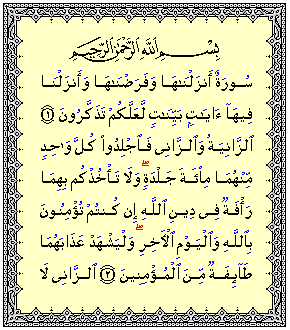 بِسْمِ ٱللَّهِ ٱلرَّحْمَٰنِ ٱلرَّحِيمِ
سُورَةٌ أَنزَلْنَٰهَا وَفَرَضْنَٰهَا وَأَنزَلْنَا
فِيهَآ ءَايَٰتٍۭ بَيِّنَٰتٍ لَّعَلَّكُمْ تَذَكَّرُونَ ۝١
ٱلزَّانِيَةُ وَٱلزَّانِى فَٱجْلِدُوا۟ كُلَّ وَٰحِدٍ
مِّنْهُمَا مِا۟ئَةَ جَلْدَةٍ ۖ وَلَا تَأْخُذْكُم بِهِمَا
رَأْفَةٌ فِى دِينِ ٱللَّهِ إِن كُنتُمْ تُؤْمِنُونَ
بِٱللَّهِ وَٱلْيَوْمِ ٱلْءَاخِرِ ۖ وَلْيَشْهَدْ عَذَابَهُمَا
طَآئِفَةٌ مِّنَ ٱلْمُؤْمِنِينَ ۝٢ ٱلزَّانِى لَا